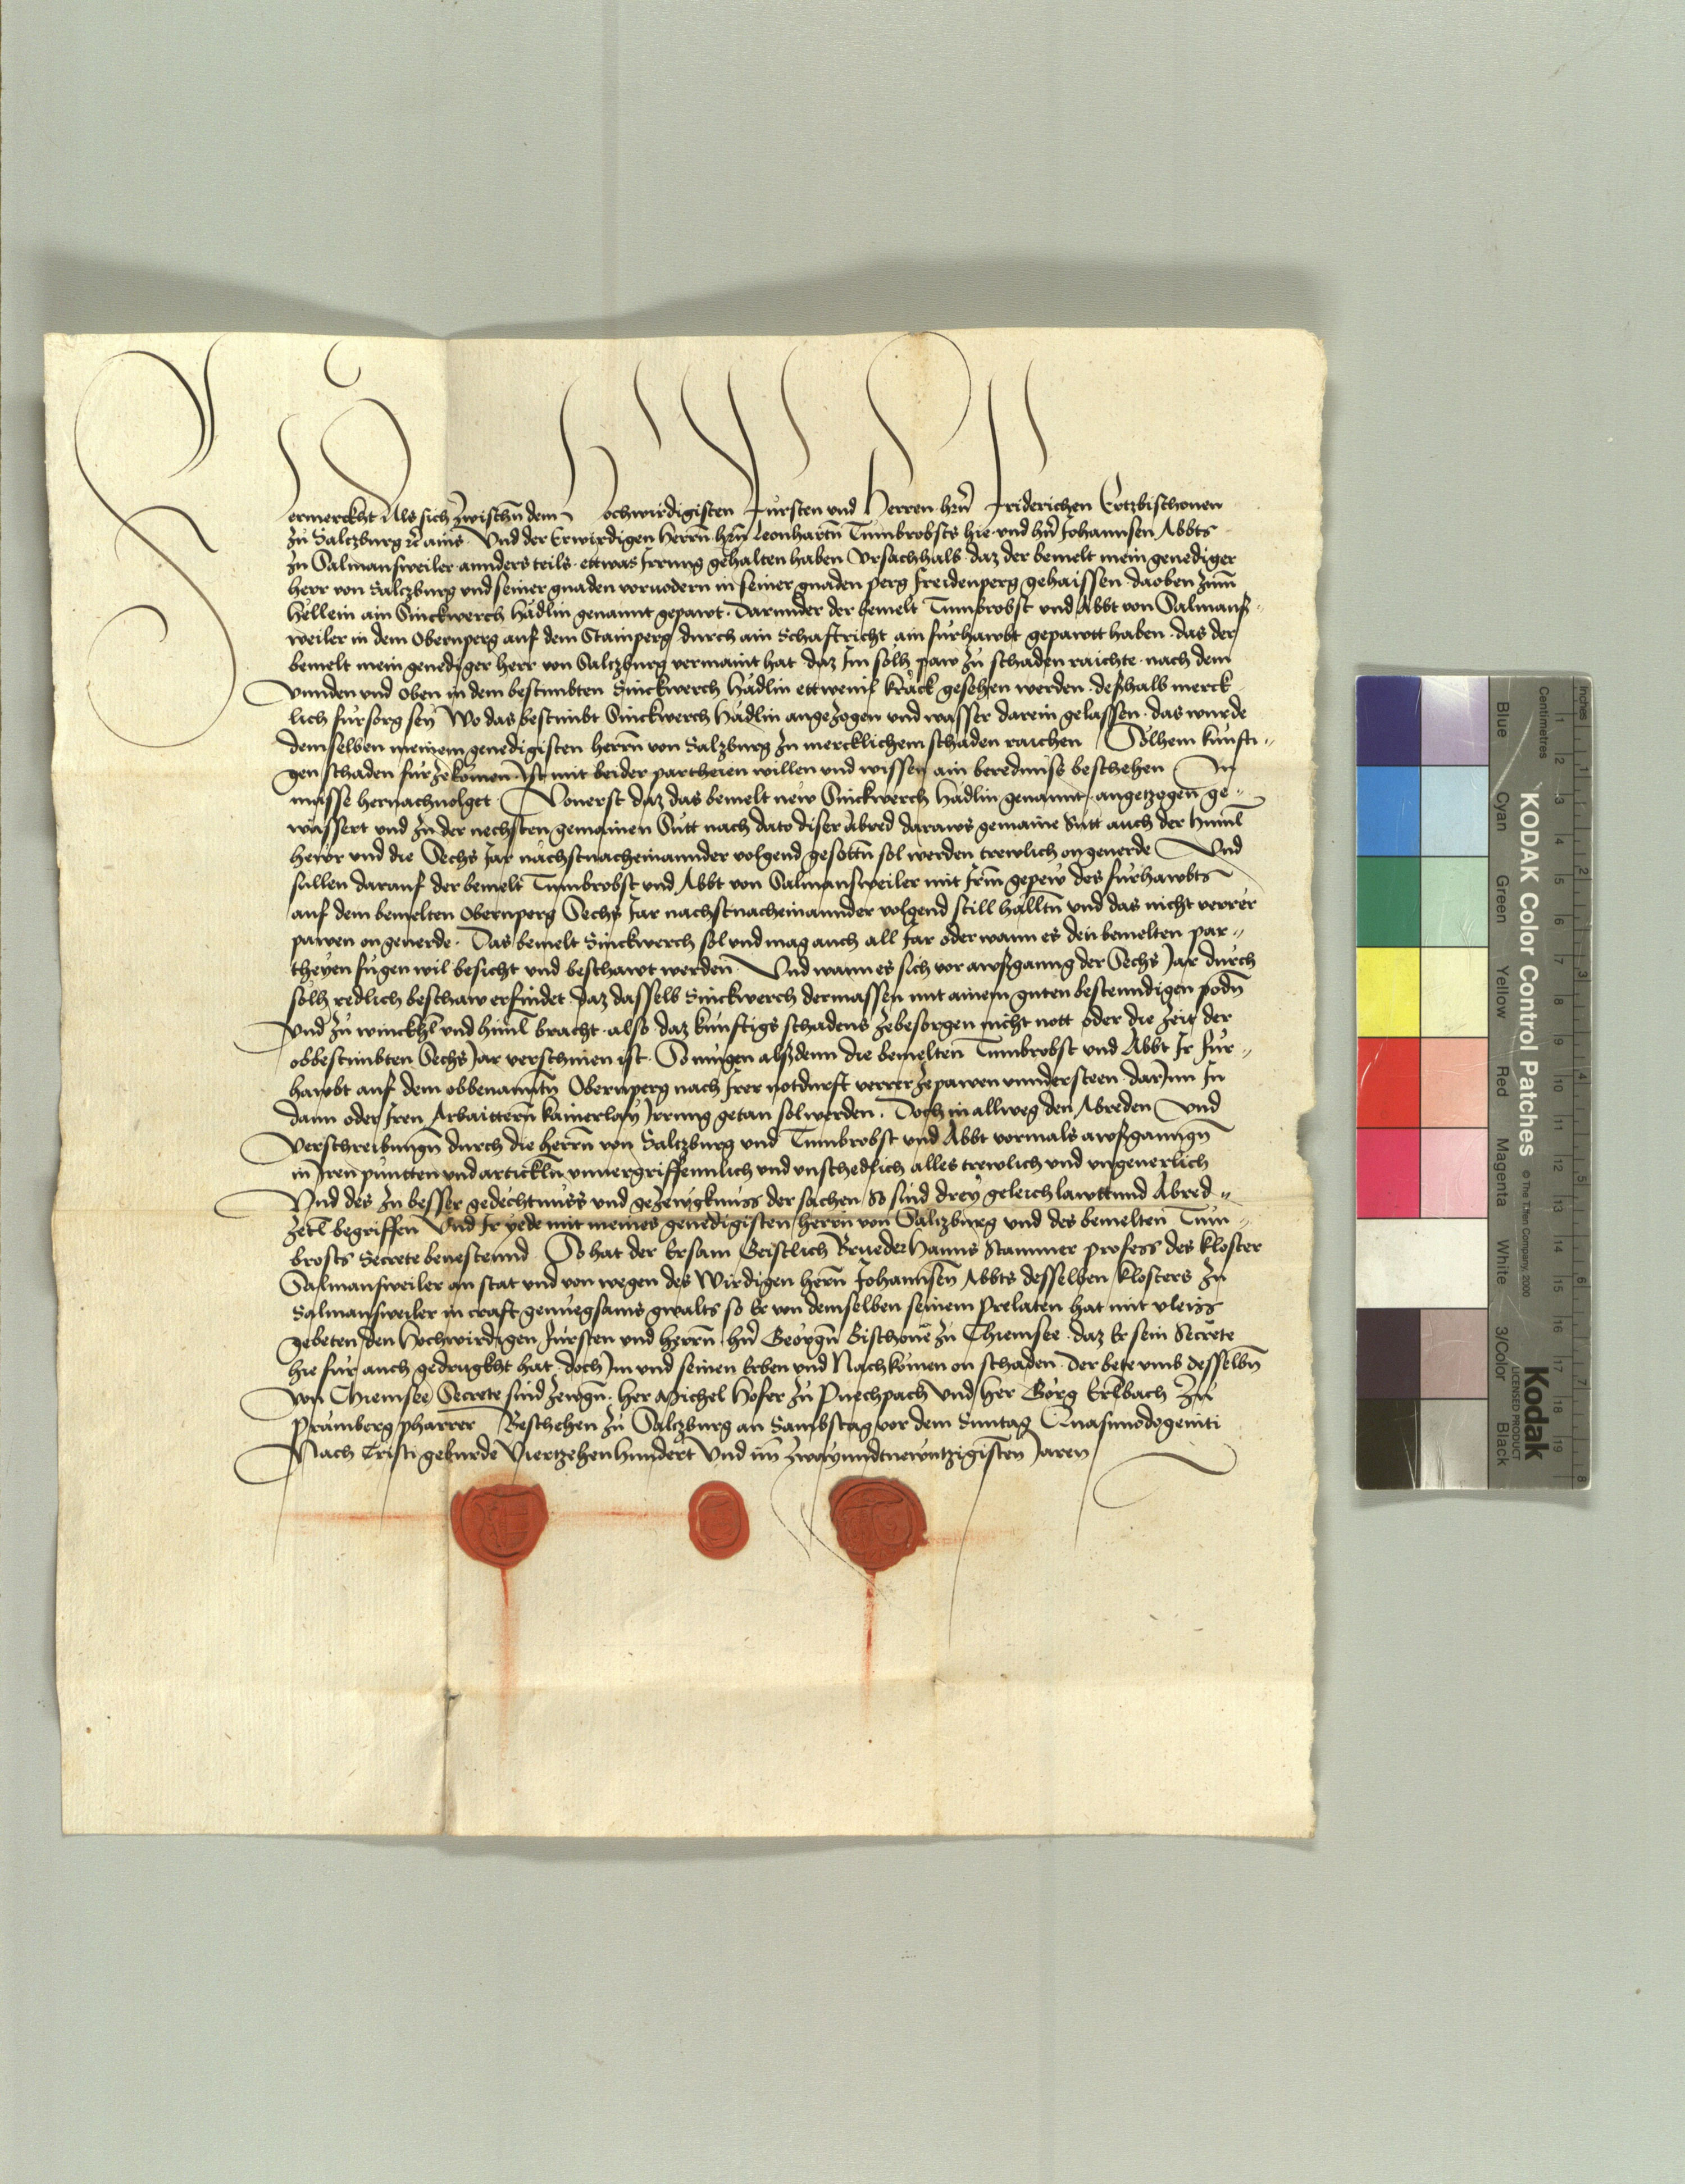 Vermerckht Als sich zwischn dem Hochwirdigisten Fürsten und Herren hrn Friderichen Ertzbischouen
zu Saltzburg etc ains. Und der Erwirdigen Herrn hrn Leonhartn Tumbrobsts hie und hrn Johannsen Abbts
zu Salmansweiler annders teils ettwas Irrung gehalten haben Vrsachhalb daz der bemelt mein genediger
herr von Saltzburg und seiner gnaden voruodern in seiner gnaden perg Freidenperg gehaissen daoben zum
hellein ain Sinckwerch hädlin genannt gepawt. Darunder der bemelt Tumbrobst und Abbt von Salmanß„
weiler in dem Obernperg auf dem Stainperg durch ain Schaftricht ain fürhawbt gepawtt haben. das der
bemelt mein genediger herr von Saltzburg vermaint hat daz Im solh paw zu schaden raichte. nach dem
vnnden und oben in dem bestimbten Sinckwerch hädlin ettwenif kräck gesehen werden. deßhalb merck
lich fürsorg sey Wo das bestimbt Sinckwerch hädlin angezogen und wasser darein gelassen. das wurde
demselben meinem genedigisten herrn von Salzburg zu mercklichem schaden raichen Solhem künfti„
gen schaden fürzekömen. Ist mit beider partheien willen und wissen ain berednüss beschehen In
masse hernachuolget Vonerst daz das bemelt new Sinckwerch hädlin genannt angetzogen ge„
wässert und zu der nechsten gemainen Sutt nach dato diser abred daraws gemaine Sutt auch der huml
hewr und die Sechs Jar nachstnacheinannder volgend gesottn sol werden trewlich ongeuerde Und
sullen darauf der bemelt Tumbrobst und Abbt von Salmansweiler mit Irm gepew des fürhawbts
auf dem bemelten Obernperg Sechs Jar nachstnacheinannder volgend still halltn und das nicht verrer
pawen ongeuerde. Das bemelt Sinckwerch sol und mag auch all Jar oder wann es den bemelten par„
theyen fügen wil besicht und beschawt werden. Und wann es sich vor awßganng der Sechs Jar durch
solh redlich beschaw erfindet daz dasselb Sinckwerch dermassen mit ainem guten bestenndigen podn
und zu winckhl und himl bracht. also daz künftigs schadens zebesorgen nicht nott oder die zeit der
obbestimbten Sechs Jar verschinen ist. So mügen alßdenn die bemelten Tumbrobst und Abbt Ir für„
hawbt auf dem obbenanntn Obernperg nach Irer notdurft verrer zepawen vnndersteen darjnn In
dann oder Iren Arbaittern kainerlay Irrung getan sol werden. Doch in allweg den Abreden Und
Verschreibungn durch die herrn von Saltzburg und Tumbrobst und Abbt vormals awßganngn
in Iren puntten und artickln vnuergriffennlich und vnschedlich alles trewlich und vngeuerlich
Und des zu besser gedechtnüss und gezewgknuss der sachen So sind drey geleich lawttund Abred„
zetl begriffen Und Ir yede mit meines genedigisten herrn von Saltzburg und des bemelten Tum„
brosts Secrete beuestennd So hat der Ersam Geistlich Brueder Hanns Stammer profess des kloster
Salmansweiler an stat und von wegen des Wirdigen herrn Johannsen Abbts desselben klosters zu
Salmansweiler in craft genuegsams gwalts so Er von demselben seinem Prelaten hat mit vleiss
gebeten den Hochwirdigen Fürsten und Herrn hrn Georgn Bischoue zu Chiemsee. daz Er sein Secrete
hie für auch gedrugkht hat. doch Im und seinen Erben und Nachkömen on schaden. Der bete umb desselbn
von Chiemsee Secrete sind zewgn. her Michel Hofer zu Puechpach und her Görg Erlbach zu
Prämberg pharrer Beschehen zu Saltzburg an Sambstag vor dem Sunntag Quasimodogeniti
Nach Cristi geburde Viertzehenhundert Und im zwayundtnewntzigisten Jaren